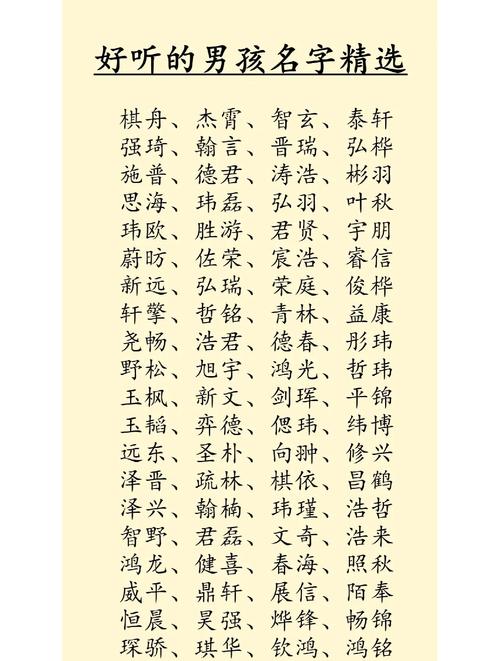 好听的男孩名字精选
棋舟、杰霄、智玄、泰轩
强琦、翰言、晋瑞、弘桦
施普、德君、涛浩、彬羽
思海、玮磊、弘羽、叶秋
玮欧、胜游、君贤、宇朋
蔚昉、佐荣、宸浩、睿信
新远、弘瑞、荣庭、俊桦
轩擎、哲铭、青林、益康
尧畅、浩君、德春、彤玮
野松、旭宇、鸿光、哲玮
玉枫、新文、剑珲、平锦
玉韬、弈德、偲玮、纬博
远东、圣朴、向翀、修兴
泽晋、疏林、棋依、昌鹤
泽兴、翰楠、玮瑾、浩哲
智野、君磊、文奇、浩来
鸿龙、健喜、春海、照秋
威平、鼎轩、展信、陌奉
恒晨、昊强、烨锋、畅锦
琛骄、琪华、钦鸿、鸿铭